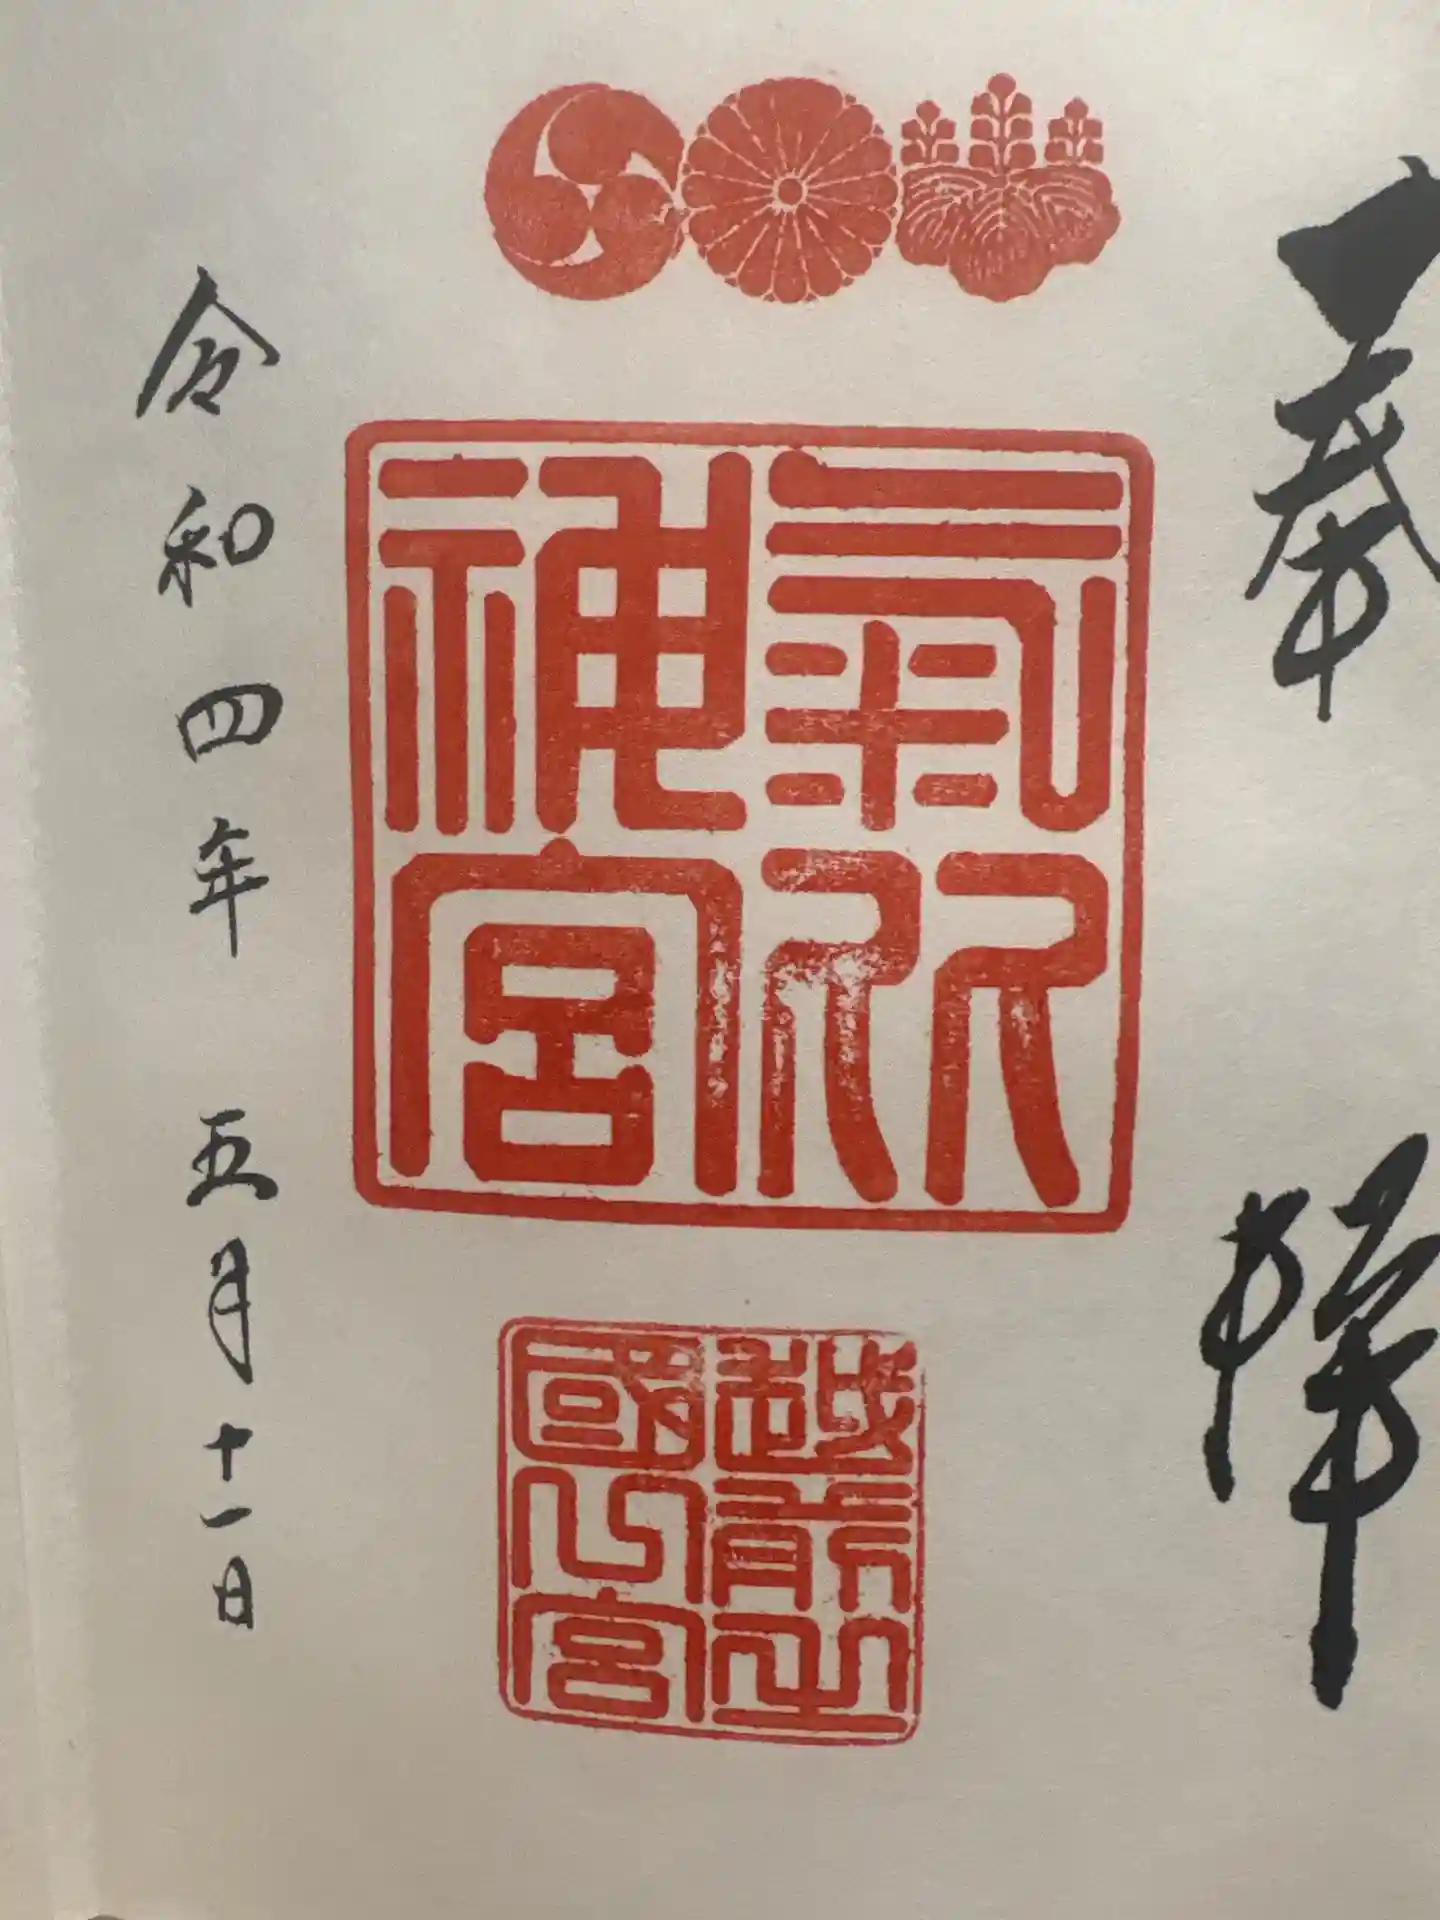 奉拝
氣比
神宮
越前之
國一宮
令和四年 五月十一日